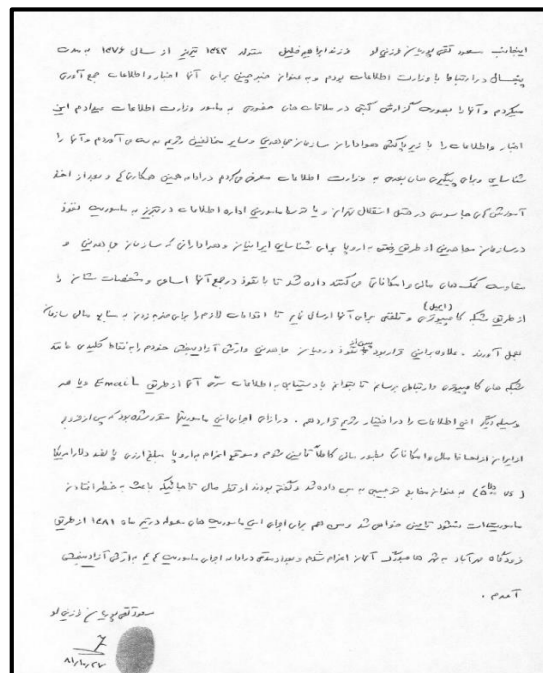 اینجانب مسعود تقی پوریان فرزند ابراهیم خلیل متولد ۱۳۴۲ تبریز از سال ۱۳۷۶ به مدت
پنجسال در ارتباط با وزارت اطلاعات بودم و به عنوان خبرچینی برای آنها اخبار و اطلاعات جمع آوری
میکردم و آنها را بصورت گزارش کتبی در ملاقات های حضوری به مامور وزارت اطلاعات میدادم این
اخبار و اطلاعات را با زیرپاکشی هواداران سازمان مجاهدین و سایر مخالفین رژیم بدست می آوردم و آنها را
شناسایی و برای پیگیری های بعدی به وزارت اطلاعات معرفی می کردم در ادامه چنین همکاری و بعد از اخذ
آموزش های جاسوسی در هتل استقلال تهران و یا توسط مامورین اداره اطلاعات در تبریز به ماموریت نفوذ
در سازمان مجاهدین از طریق رفتن به اروپا برای شناسایی ایرانیان و هوادارانی که سازمان مجاهدین و
مقاومت کمک های مالی و امکاناتی می کنند داده شد تا با نفوذ در جمع آنها اسامی و مشخصات شان را
از طریق شبکه کامپیوتری (ایمیل) و تلفنی برای آنها ارسال نمایم تا اقدامات لازم را برای ضربه زدن به منابع مالی سازمان
بعمل آورند . علاوه براین قرار بود پس از نفوذ در میان مجاهدین و ارتش آزادیبخش خودم را به نقاط کلیدی مانند
شبکه های کامپیوتری و ارتباطی برسانم تا بتوانم با دستیابی به اطلاعات سری آنها از طریق Email و یا هر
وسیله دیگر این اطلاعات را در اختیار رژیم قرار دهم . در ازای اجرای این ماموریتها مقرر شده بود که پس از خروج
از ایران از لحاظ مالی و امکاناتی بطور کاملا تامین شوم و موقع اعزام به اروپا مبلغ ارزی پانصد دلار امریکا
به عنوان توجیبی به من داده شد و گفته بودند از نظر مالی تا جائیکه باعث به خطر افتادن
ماموریت ات نشود تامین خواهی شد و من هم برای اجرای این ماموریت های محوله در تیر ماه ۱۳۸۱ از طریق
فرودگاه مهرآباد به شهر هامبورگ آلمان اعزام شدم و بعد از مدتی در ادامه اجرای ماموریت به ارتش آزادیبخش
آمدم .
مسعود تقی پوریان